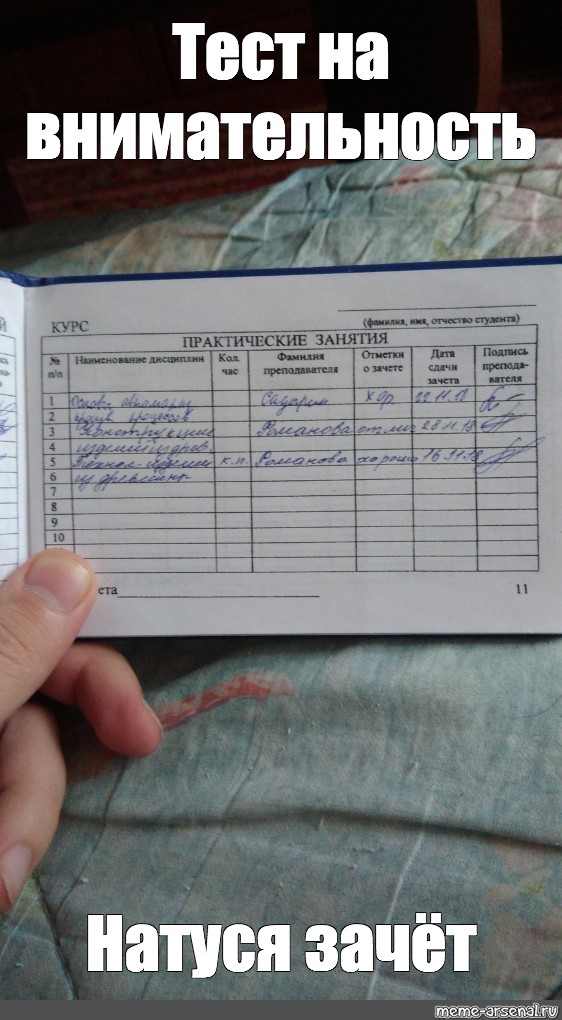 Тест на
внимательность
Й КУРС
(фамилия, имя, отчество студента)
ПРАКТИЧЕСКИЕ ЗАНЯТИЯ
№ п/п Наименование дисциплин Кол. час Фамилия преподавателя Отметки о зачете Дата сдачи зачета Подпись препода-вателя
1 Основы хор 22.11.18
2 процессов
3 Конструкции Романова отлич 28.11.18
4 изделий из древ.
5 Технол. изделий к.п. Романова хорошо 16.11.18
6 из древесины
7
8
9
10
ета 11
Натуся зачёт
meme-arsenal.ru